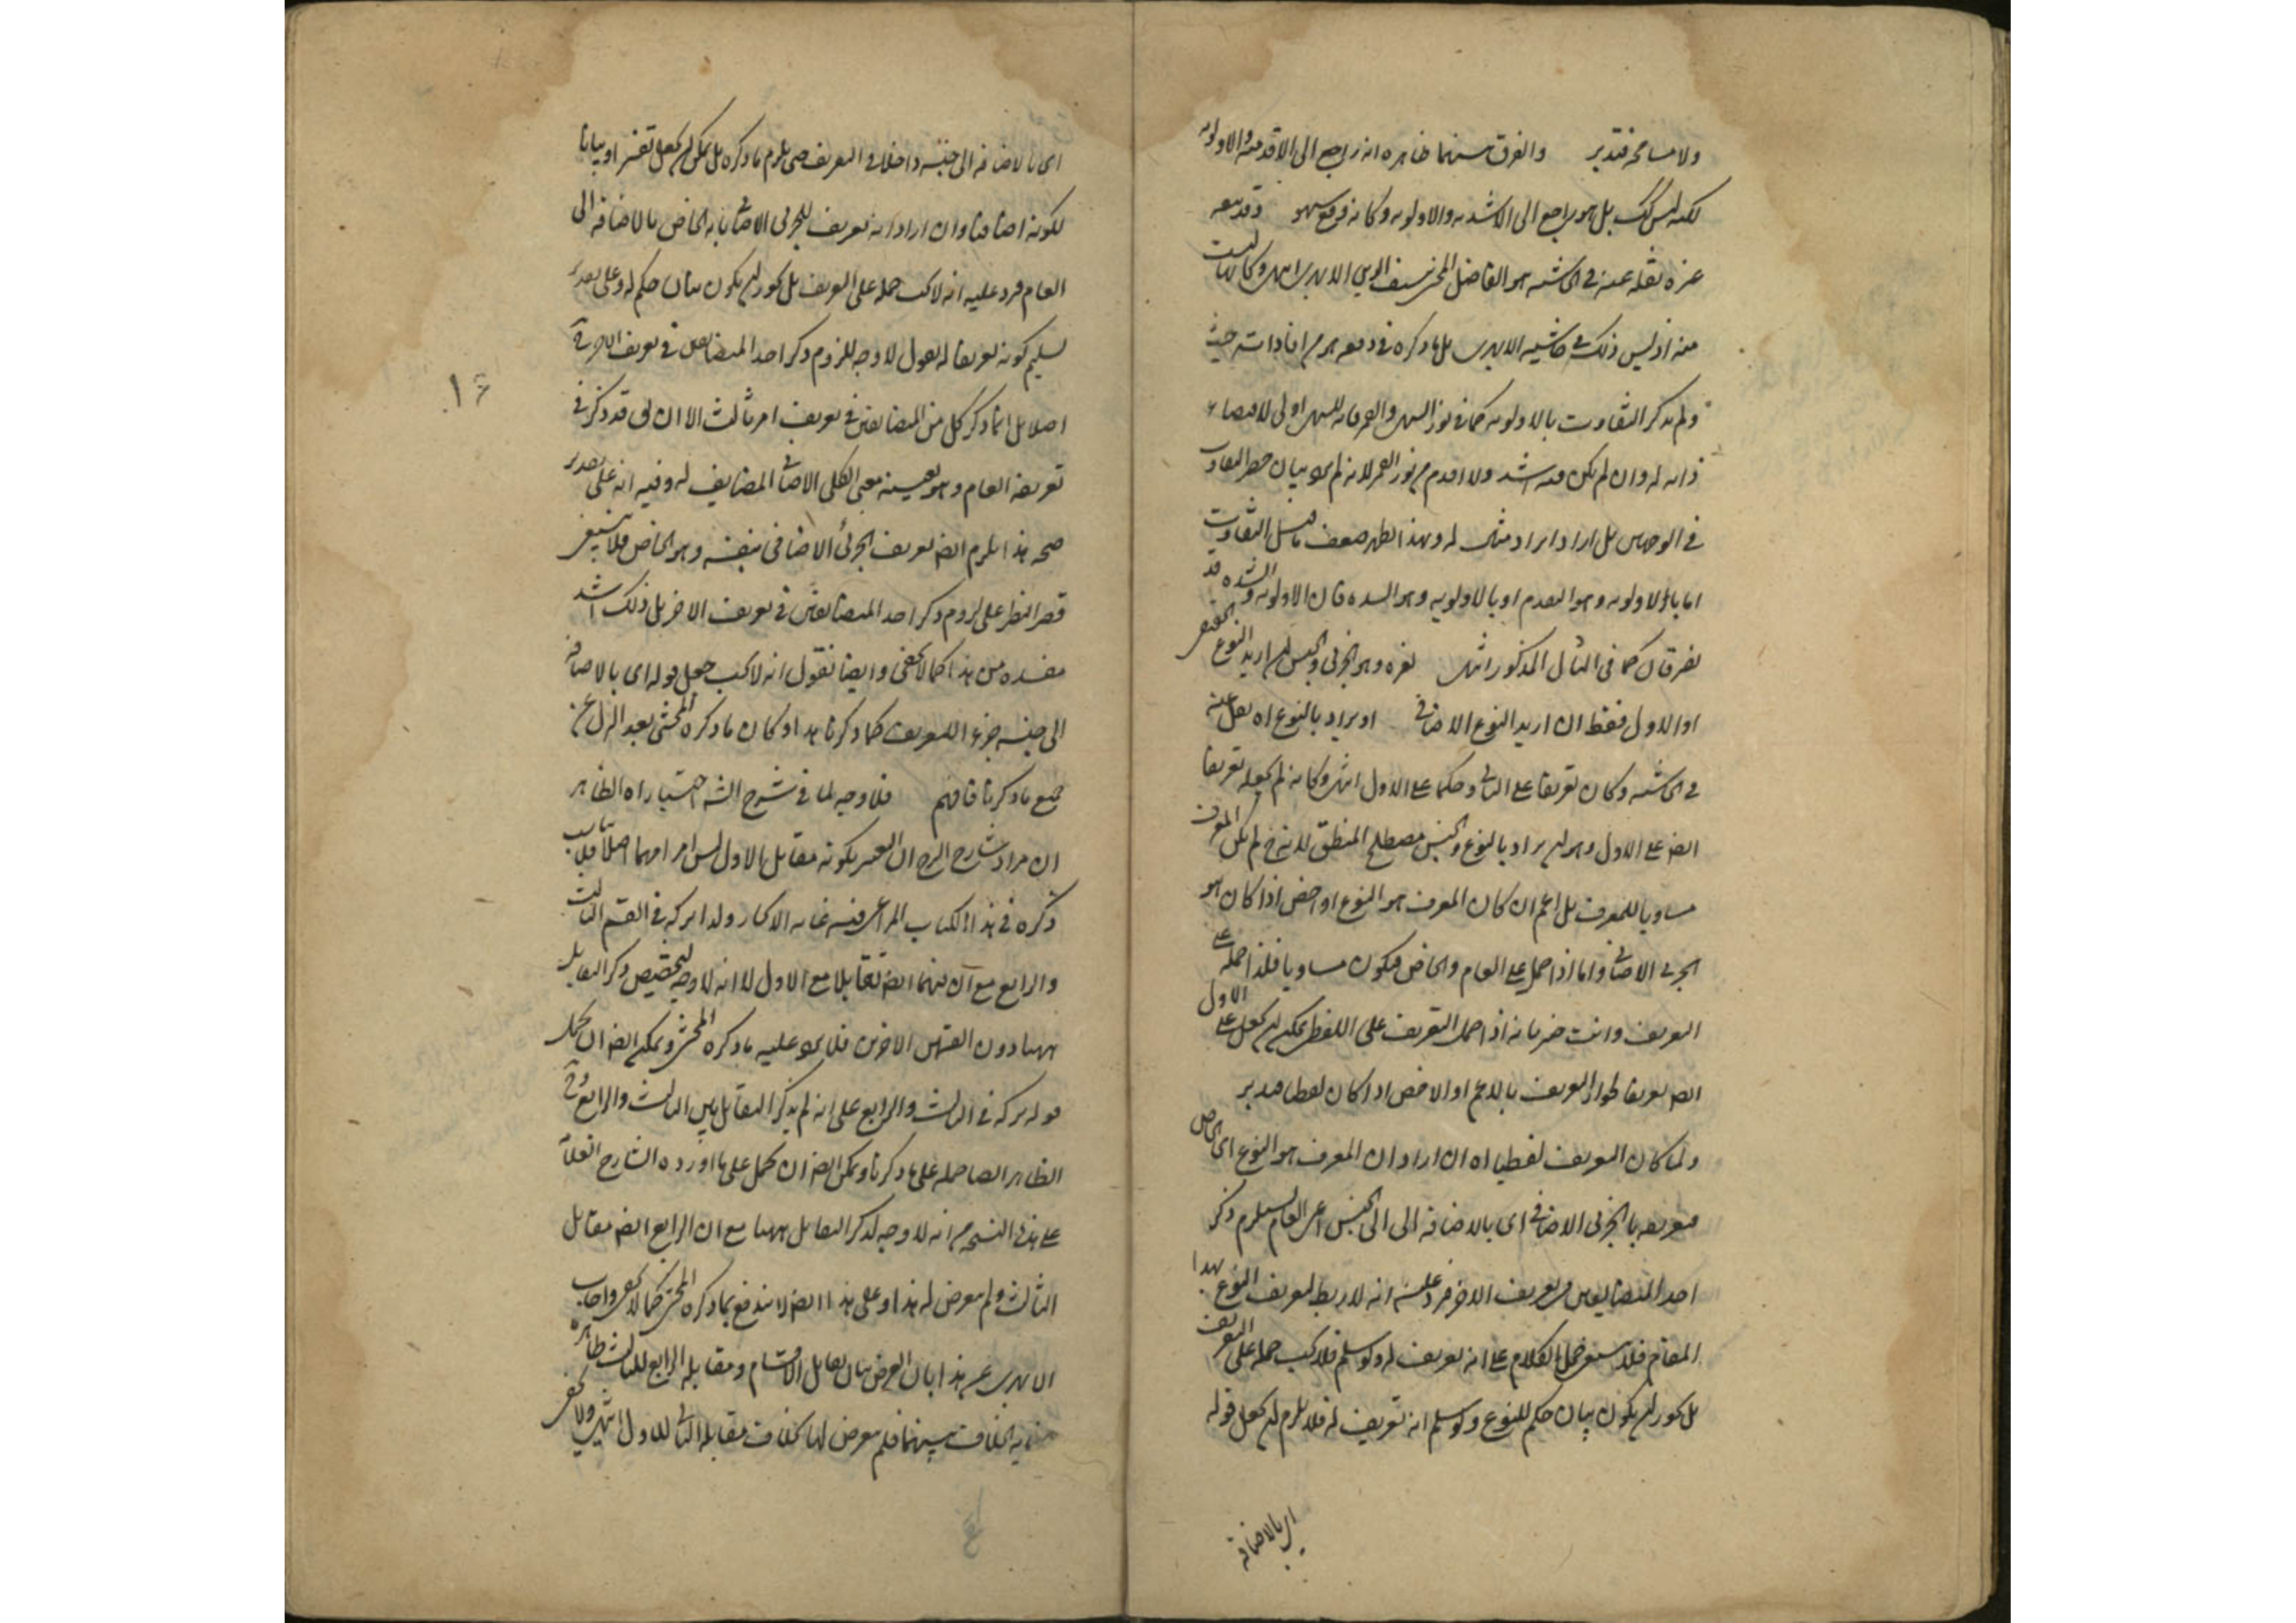 ولا مسامحة فتدبر والفرق بينهما ظاهره انه راجع الى الاقدمية والاولوية
لكنه ليس كك بل هو راجع الى الاشدية والاولوية وكانه وقع سهو
نقله عنه في الحاشية هو الفاضل المحشى سيف الدين الابهرى انتهى وكانه
منه اذ ليس ذلك في حاشية الابهرى بل ما ذكره في دفعه هو من افادات حيث
ولم يذكر التفاوت بالاولوية كما في نور الشمس والقمر فانه للشمس اولى لاقتضاء
ذاته له وان لم يكن فيه اشد ولا اقدم من نور القمر لانه لم يرد بيان حصر التفاوت
في الوجهين بل اراد ايراد مثال له وبهذا يظهر ضعف ما قيل التفاوت
اما بالاولوية وهو التقدم او بالاولوية وهو الشدة فان الاولوية والشدة قد
يفترقان كما في المثال المذكور انتهى وهو الجزئى والجنس ان اريد النوع الحقيقى
او الاول فقط ان اريد النوع الاضافى او يراد بالنوع اه نقل عنه
في الحاشية وكان تعريفا على الثانى وحكما على الاول انتهى وكانه لم يجعله تعريفا
ايضا على الاول وهو ان يراد بالنوع والجنس مصطلح المنطق لانه ح لم يكن المعرف
مساويا للمعرف بل اعم ان كان المعرف هو النوع او اخص اذا كان هو
الجزئى الاضافى واما اذا حمل على العام والخاص فيكون مساويا فلذا حمله على
التعريف وانت خبير بانه اذا حمل التعريف على اللفظى يمكن ان يجعل على الاول
ايضا تعريفا لجواز التعريف بالاعم او الاخص اذا كان لفظيا فتدبر
ولما كان التعريف لفظيا اه ان اراد ان المعرف هو النوع اى الخاص
فتعريفه بالجزئى الاضافى اى بالاضافة الى الجنس اعنى العام يستلزم ذكر
احد المتضايفين في تعريف الاخر فيرد عليه انه لا ربط لتعريف النوع بهذا
المقام فلا ينبغى حمل الكلام على انه تعريف له ولو سلم فلا يجب حمله على التعريف
بل يجوز ان يكون بيان حكم للنوع ولو سلم انه تعريف له فلا يلزم ان يجعل قوله
اى بالاضافة
اى بالاضافة الى جنسه داخلا في التعريف حتى يلزم ما ذكره بل يمكن ان يجعل تفسيرا وبيانا
لكونه اضافيا وان اراد انه تعريف للجزئى الاضافى بانه الخاص بالاضافة الى
العام فيرد عليه انه لا يجب حمله على التعريف بل يجوز ان يكون بيان حكم له وعلى تقدير
تسليم كونه تعريفا له نقول لا وجه للزوم ذكر احد المتضايفين في تعريف الاخر
اصلا بل انما ذكر كل من المتضايفين في تعريف امر ثالث الا ان يق قد ذكر في
تعريفه العام وهو بعينه معنى الكلى الاضافى المضايف له وفيه انه على تقدير
صحة هذا يلزم ايضا تعريف الجزئى الاضافى بنفسه وهو الخاص فلا ينبغى
قصر النظر على لزوم ذكر احد المتضايفين في تعريف الاخر بل ذلك اشد
مفسدة من هذا كما لا يخفى وايضا نقول انه لا يجب جعل قوله اى بالاضافة
الى جنسه جزءا للتعريف كما ذكرنا هذا وكان ما ذكره المحشى بعد التنزل عن
جميع ما ذكرنا فافهم فلا وجه لما في شرح الشرح اختياراه الظاهر
ان مراد شارح الشرح ان التعبير بكونه مقابلا للاول ليس امرا مهما اصلا فلا يناسب
ذكره في هذا الكتاب المراعى فيه غاية الايجاز ولذا تركه في القسم الثالث
والرابع مع ان بينهما ايضا تقابلا مع الاول لا انه لا وجه لتخصيص ذكر التقابل
ههنا دون القسمين الاخرين فلا يرد عليه ما ذكره المحشى ويمكن ايضا ان يحمل
قوله تركه في الثالث والرابع على انه لم يذكر التقابل بين الثالث والرابع
الظاهر ايضا حمله على ما ذكرنا ويمكن ايضا ان يحمل على ما اورده الشارح العلامة
على هذه النسخة من انه لا وجه لذكر التقابل ههنا مع ان الرابع ايضا مقابل
الثالث ولم يتعرض له هذا وعلى هذا ايضا لا يندفع بما ذكره المحشى كما لا يخفى واجاب
الابهرى عن هذا بان الغرض بيان تقابل الاقسام ومقابلة الرابع للثالث ظاهرة
الخلاف بينهما فلم يتعرض لها بخلاف مقابلة الثانى للاول انتهى ولا يخفى